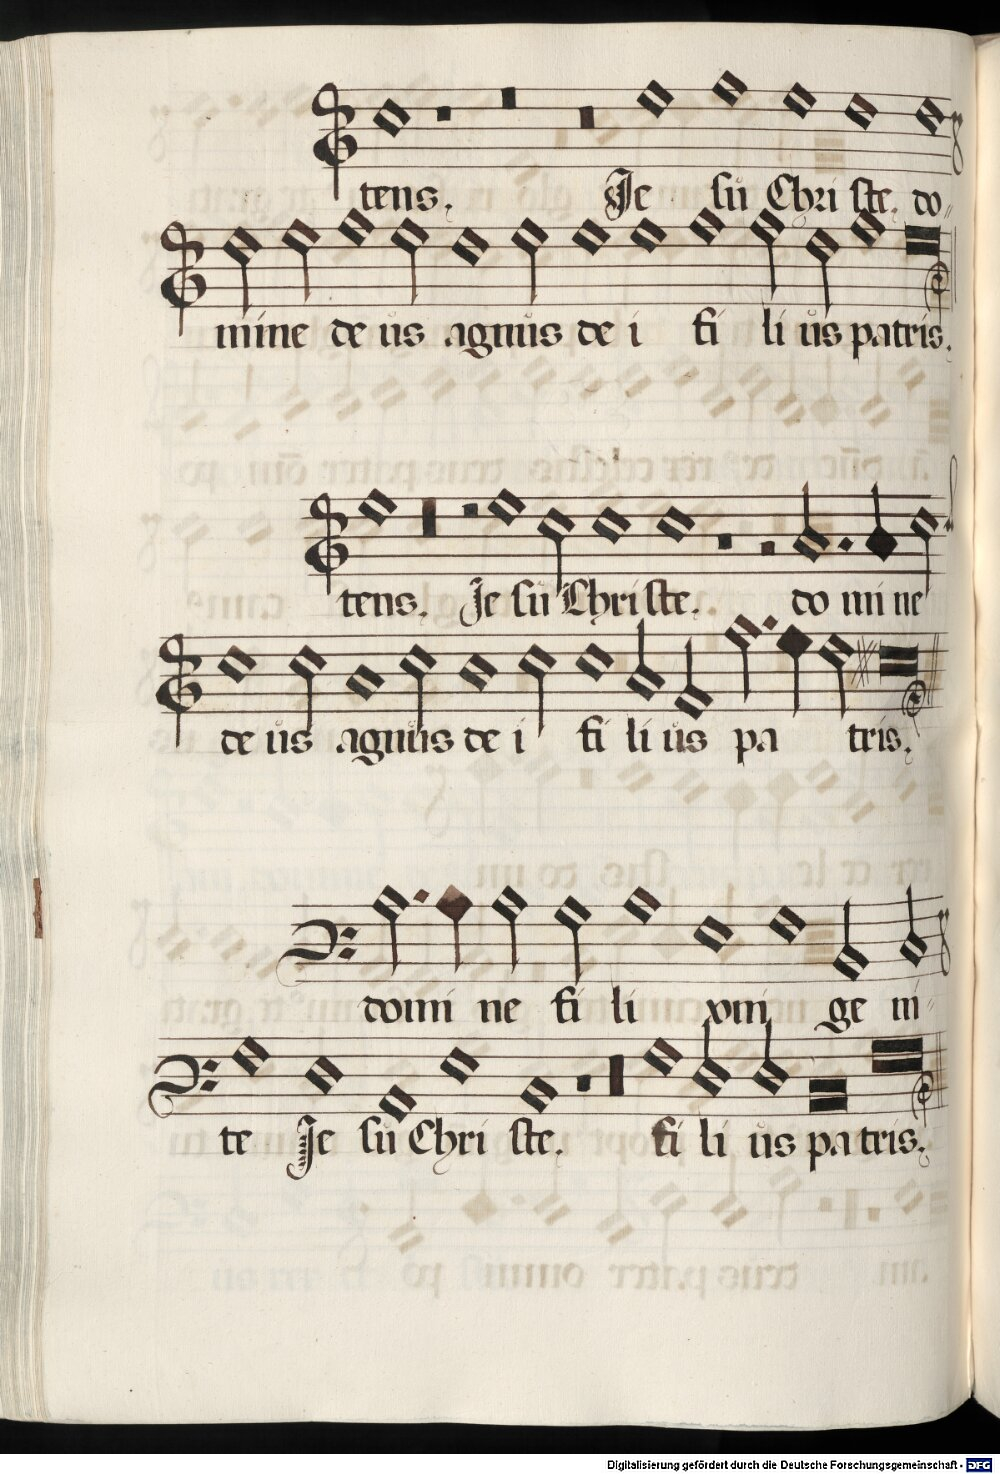 tens. Je sů Chri ste. do
mine de ůs agnůs de i fi li ůs patris.
tens. Je sů Christe. do mi ne
de ůs agnůs de i fi li ůs pa tris.
domi ne fi li vni ge ni
te Je sů Chri ste. fi li ůs patris.
Digitalisierung gefördert durch die Deutsche Forschungsgemeinschaft - DFG